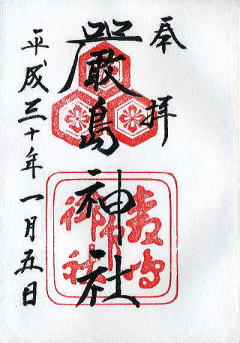 奉拝
嚴島神社
平成三十年一月五日